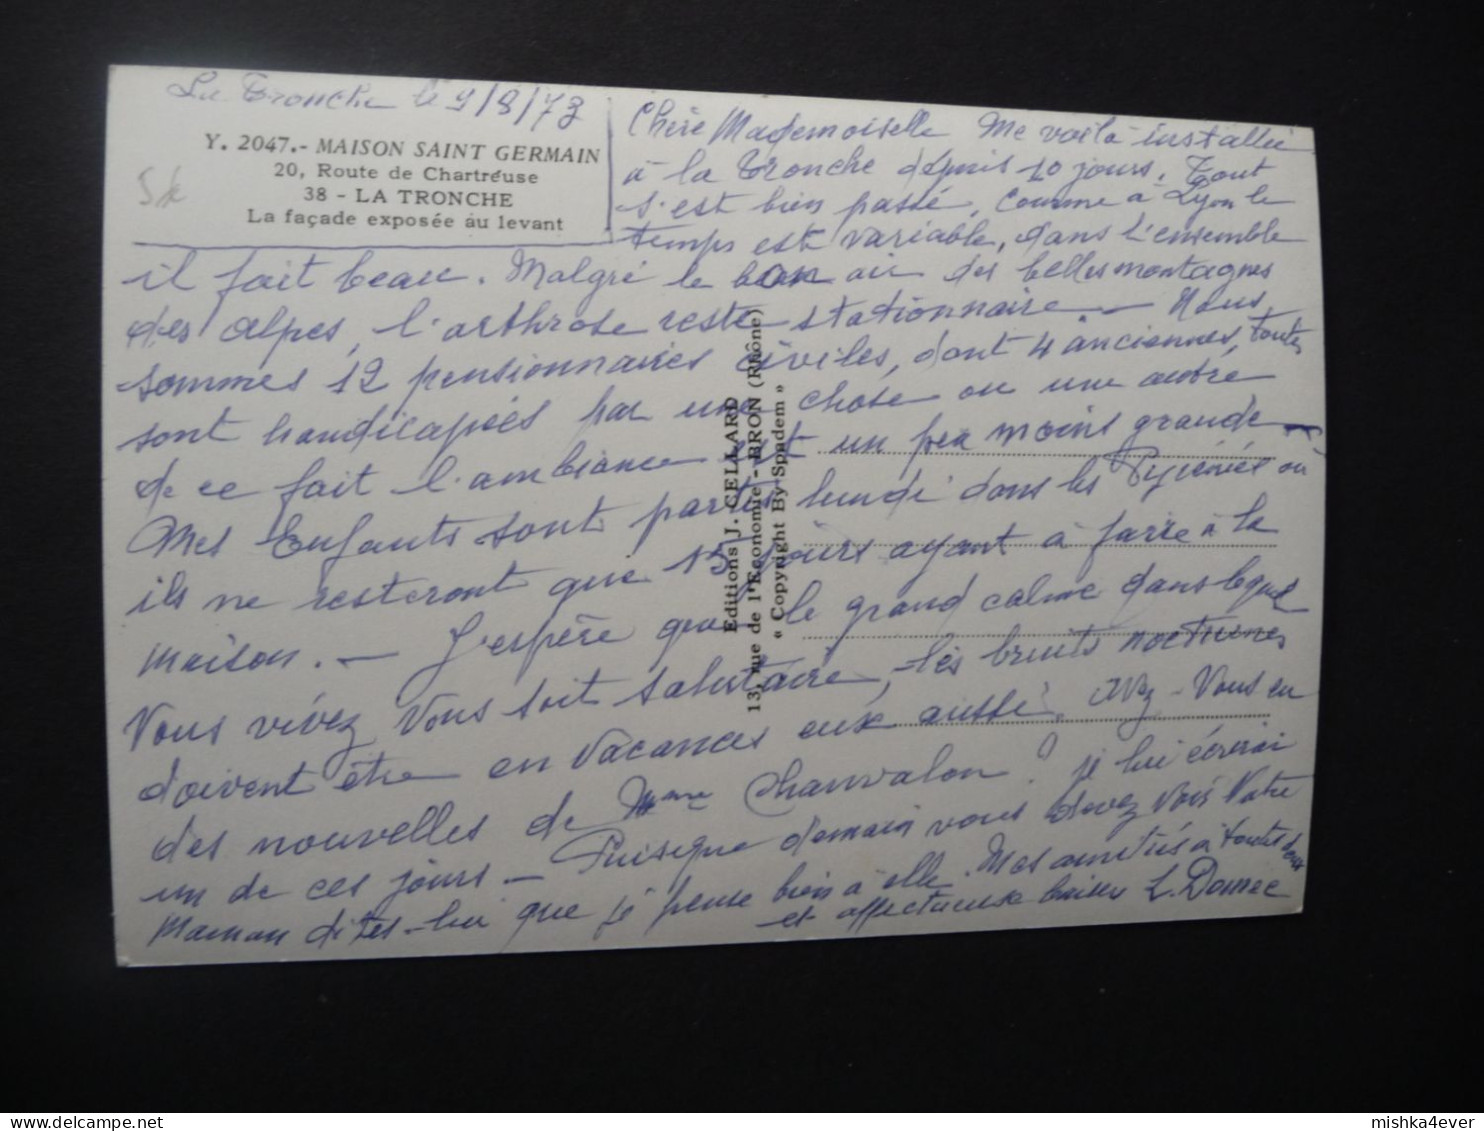 La Tronche le 9/8/73
Y. 2047.- MAISON SAINT GERMAIN
20, Route de Chartreuse
38 - LA TRONCHE
La façade exposée au levant
Chère Mademoiselle Me voilà installée
à la Tronche depuis 10 jours. Tout
s'est bien passé, comme à Lyon le
temps est variable, dans l'ensemble
il fait beau. Malgré le bon air des belles montagnes
des Alpes, l'arthrose reste stationnaire. - Nous
sommes 12 pensionnaires civiles, dont 4 anciennes, toutes
sont handicapées par une chose ou une autre
de ce fait l'ambiance est un peu moins grande
Mes Enfants sont partis lundi dans les Pyrénées où
ils ne resteront que 15 jours ayant à faire à la
maison. - J'espère que le grand calme dans lequel
Vous vivez Vous soit salutaire, les bruits nocturnes
doivent être en vacances eux aussi. Avez-Vous eu
des nouvelles de Mme Chanvalon? je lui écrirai
un de ces jours - Puisque demain vous devez Voir Votre
Maman dites-lui que je pense bien à elle. Mes amitiés à toutes deux
et affectueux baisers L. Domec
Editions J. CELLARD
13, rue de l'Economie - BRON (Rhône)
« Copyright By Spadem »
mishka4ever